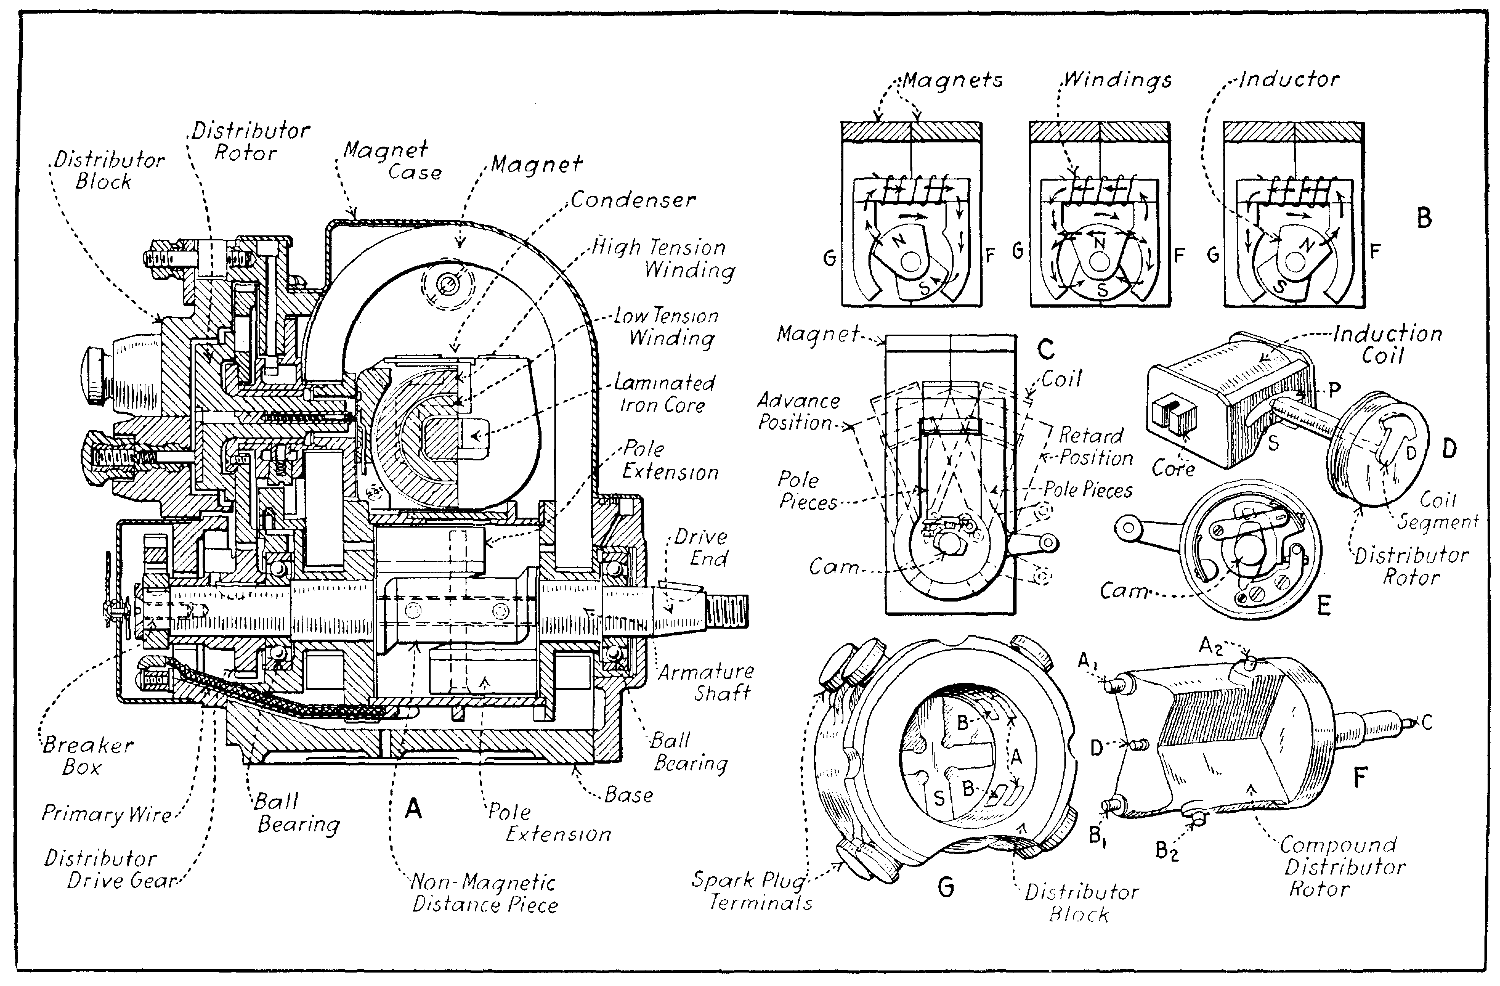 Distributor
Rotor
Distributor
Block
Magnet
Case
Magnet
Condenser
High Tension
Winding
Low Tension
Winding
Laminated
Iron Core
Pole
Extension
Drive
End
Armature
Shaft
Ball
Bearing
Base
Pole
Extension
A
Non-Magnetic
Distance Piece
Ball
Bearing
Breaker
Box
Primary Wire
Distributor
Drive Gear
Magnets
Windings
Inductor
B
G
N
S
F
G
N
S
F
G
N
S
F
Magnet
C
Coil
Advance
Position
Retard
Position
Pole
Pieces
Pole Pieces
Cam
Induction
Coil
P
S
D
D
Core
Coil
Segment
Distributor
Rotor
Cam
E
B
A
B
S
Spark Plug
Terminals
G
Distributor
Block
A1
A2
C
D
B1
B2
F
Compound
Distributor
Rotor